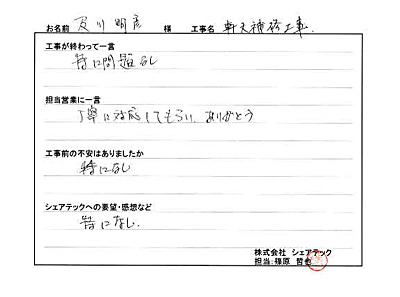 お名前 及川 明彦 様 工事名 軒天補修工事.
工事が終わって一言
特に問題なし
担当営業に一言
丁寧に対応してもらい、ありがとう
工事前の不安はありましたか
特になし
シェアテックへの要望・感想など
特になし.
株式会社 シェアテック
担当:篠原 哲也